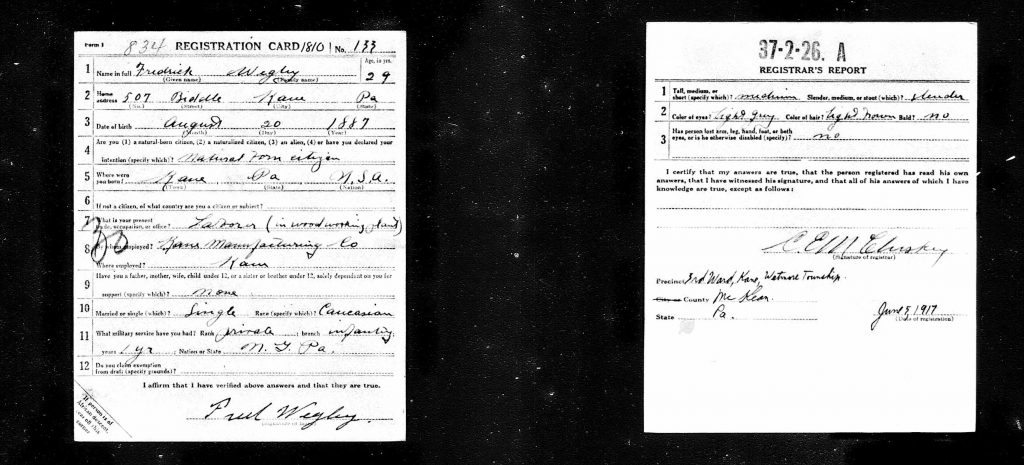 Form 1 834 REGISTRATION CARD 1810 No. 133
1 Name in full Fredrick Wegley Age, in yrs. 29
(Given name) (Family name)
2 Home address 507 Biddle Kane Pa
(No.) (Street) (City) (State)
3 Date of birth August 20 1887
(Month) (Day) (Year)
Are you (1) a natural-born citizen, (2) a naturalized citizen, (3) an alien, (4) or have you declared your
4 intention (specify which)? Natural born citizen
5 Where were you born? Kane Pa U.S.A.
(Town) (State) (Nation)
6 If not a citizen, of what country are you a citizen or subject?
7 What is your present trade, occupation, or office? Laborer (in woodworking plant)
8 By whom employed? Kane Manufacturing Co
Where employed? Kane
9 Have you a father, mother, wife, child under 12, or a sister or brother under 12, solely dependent on you for
support (specify which)? None
10 Married or single (which)? Single Race (specify which)? Caucasian
11 What military service have you had? Rank private ; branch infantry
years 1 yr ; Nation or State N. G. Pa.
12 Do you claim exemption from draft (specify grounds)?
I affirm that I have verified above answers and that they are true.
Fred Wegley
If person is of
African descent,
tear off this
corner
37-2-26. A
REGISTRAR'S REPORT
1 Tall, medium, or short (specify which)? medium Slender, medium, or stout (which)? slender
2 Color of eyes? Light Grey Color of hair? Light Brown Bald? No
3 Has person lost arm, leg, hand, foot, or both
eyes, or is he otherwise disabled (specify)? no
I certify that my answers are true, that the person registered has read his own
answers, that I have witnessed his signature, and that all of his answers of which I have
knowledge are true, except as follows:
(Signature of registrar)
Precinct 3rd Ward, Kane, Wetmore Township.
County Mc Kean
State Pa. June 5, 1917
(Date of registration)